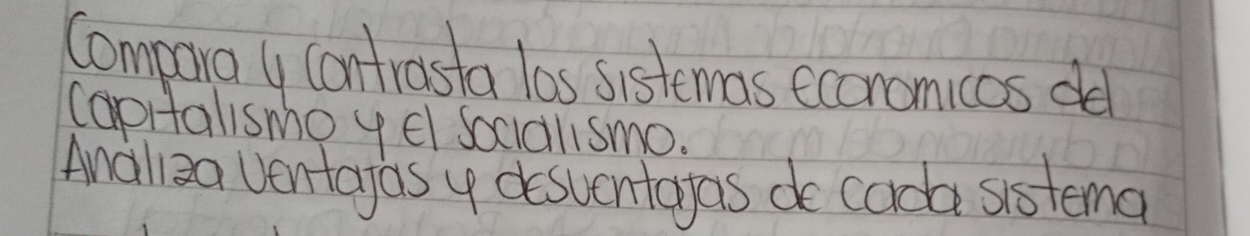 Compara y contrasta los sistemas economicos del
capitalismo y el socialismo.
Analiza ventajas y desventajas de cada sistema